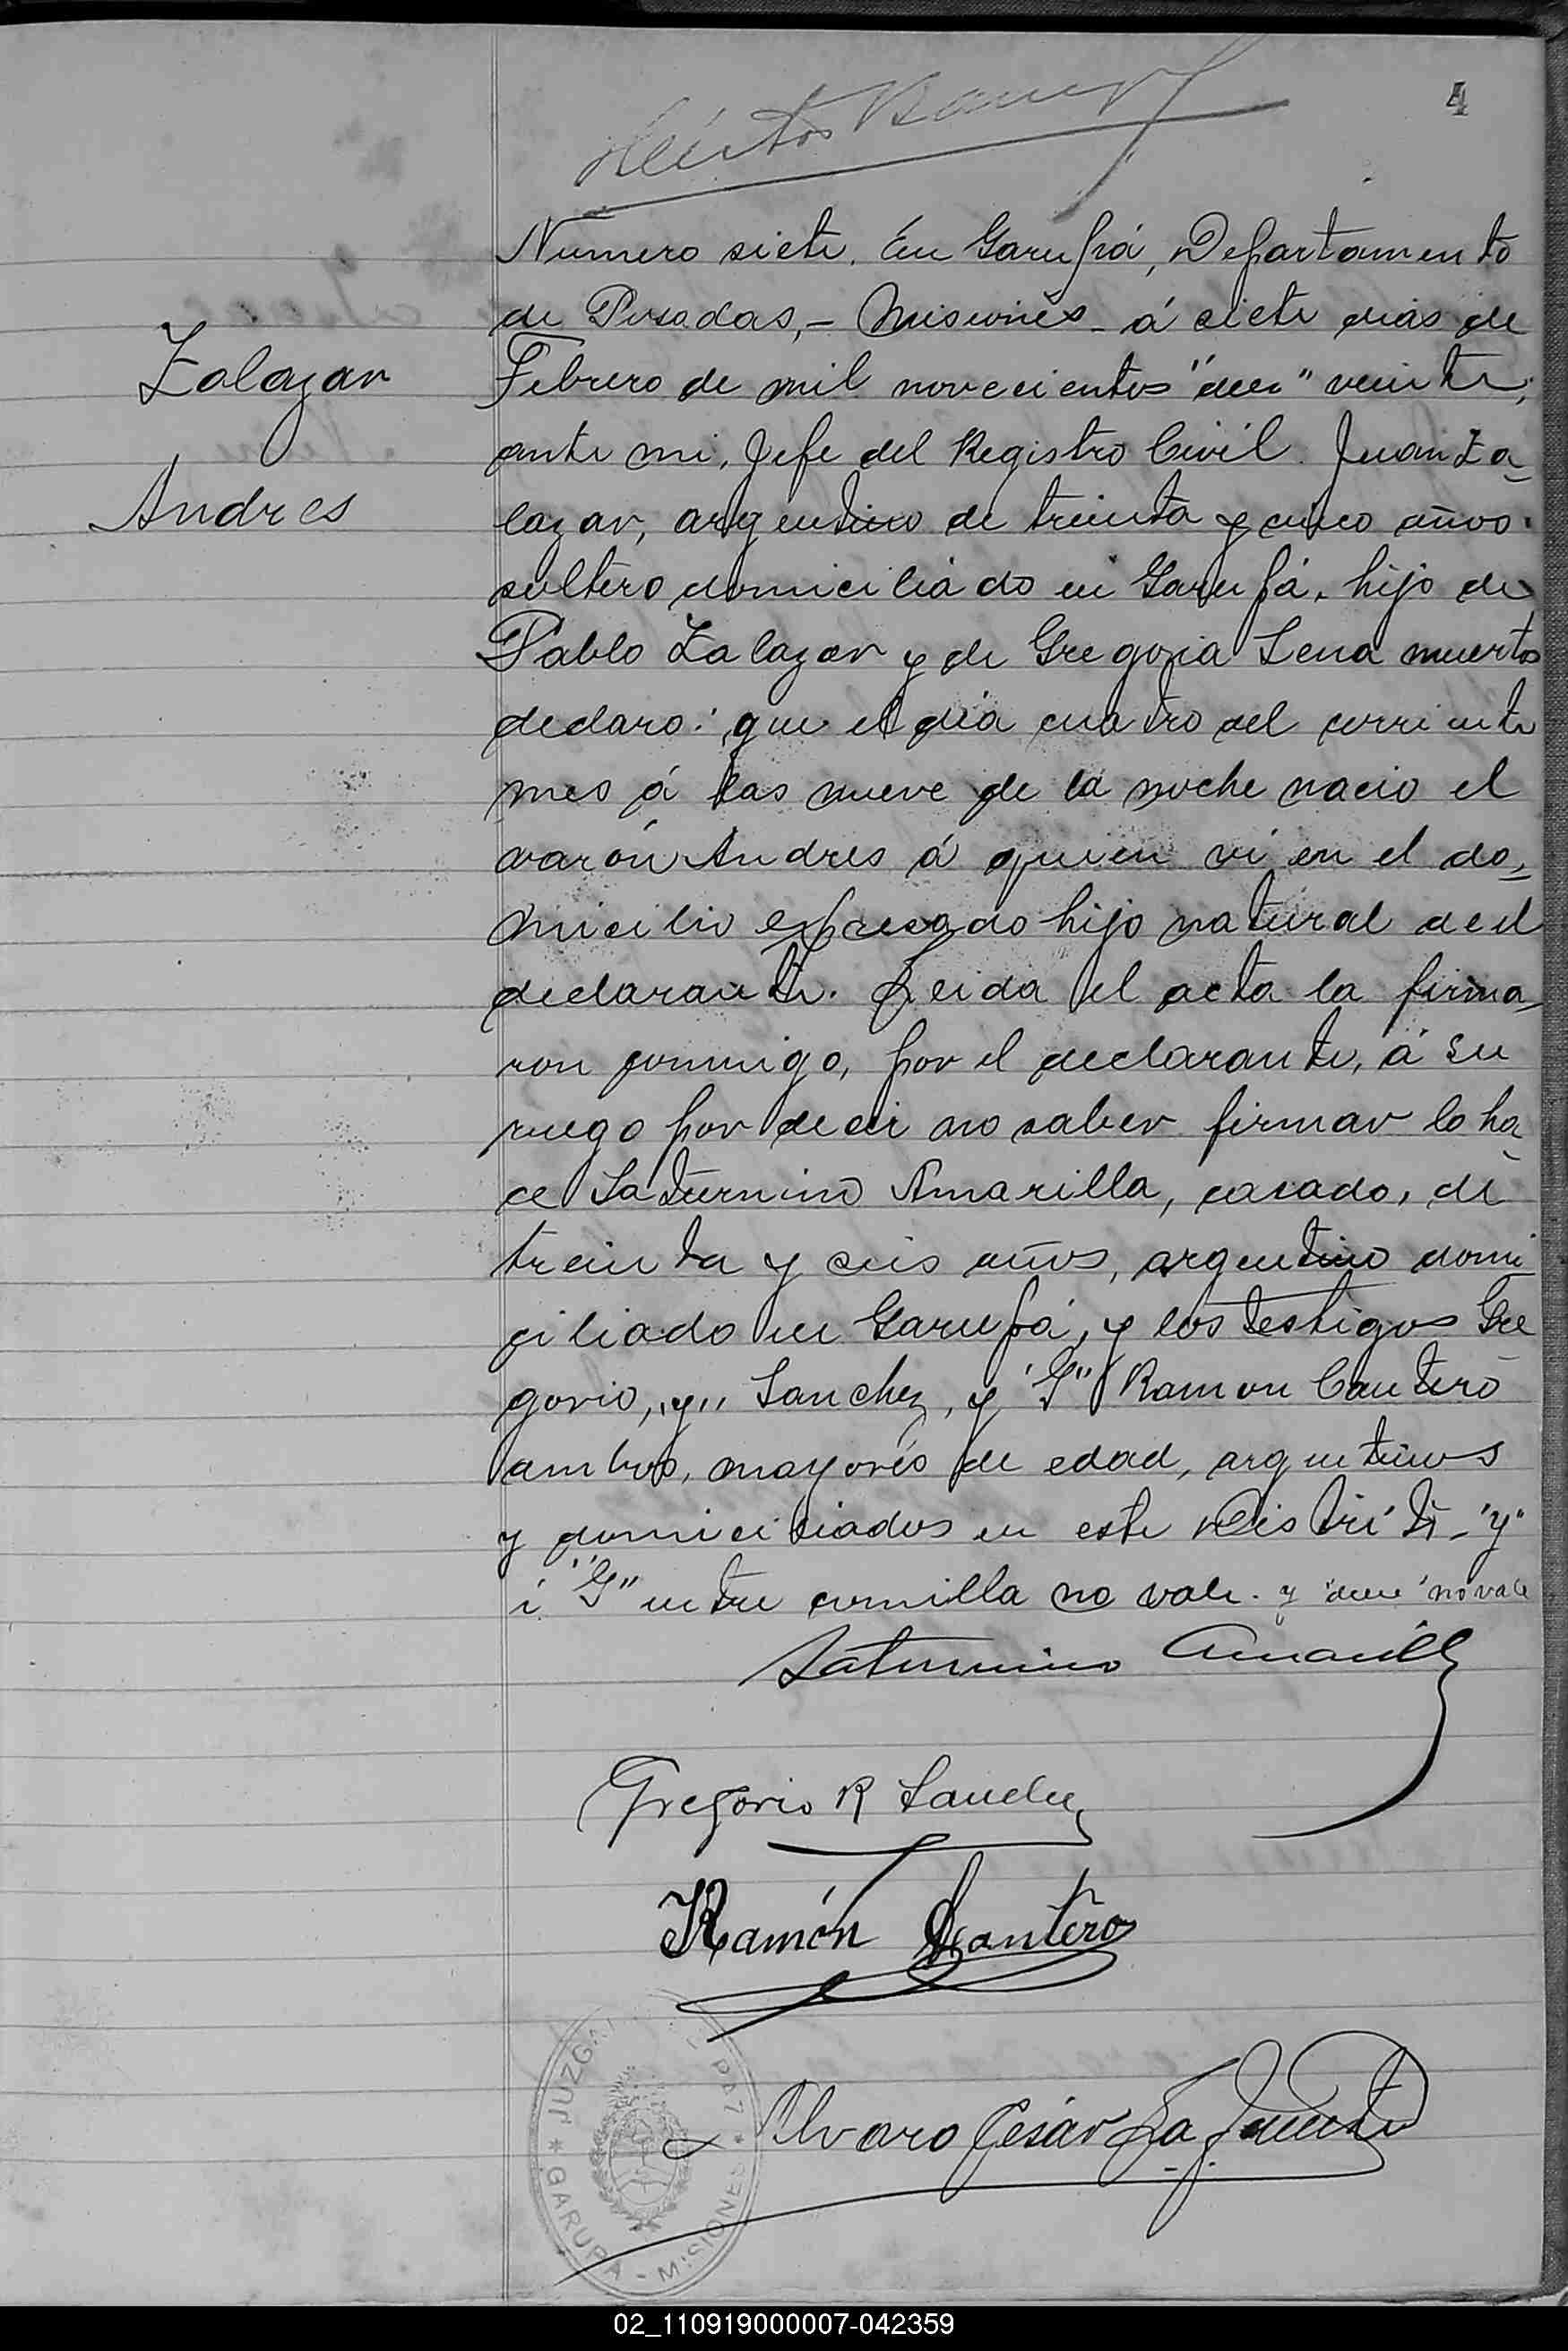 4
Numero siete. En Garupá, Departamento
de Posadas,- Misiones - á siete dias de
Zalazar
Febrero de mil novecientos " " veinte,
ante mi, Jefe del Registro Civil. Juan Za=
Andres
lazar, argentino de treinta y cinco años.
soltero domiciliado en Garupá. hijo de
Pablo Zalazar y de Gregoria Sena muertos
declaro: que el día cuatro del corriente
mes á las nueve de la noche nacio el
varón Andres á quien vi en el do=
micilio expresado hijo natural del
declarante. Leida el acta la firma-
ron conmigo, por el declarante, á su
ruego por decir no saber firmar lo ha
ce Saturnino Amarilla, casado, de
treinta y seis años, argentino domi
ciliado en Garupá, y los testigos Gre
gorio, "y" Sanchez, y "G" Ramon Cantero
ambos, mayores de edad, argentinos
y domiciliados en este Distrito - "y"
i "G" entre comilla no vale. y no vale
Saturnino Amarilla
Gregorio R Sanchez
Ramón Cantero
Alvaro César La Fuente
JUZGA PAZ * GARUPA - MISIONES *
02_110919000007-042359